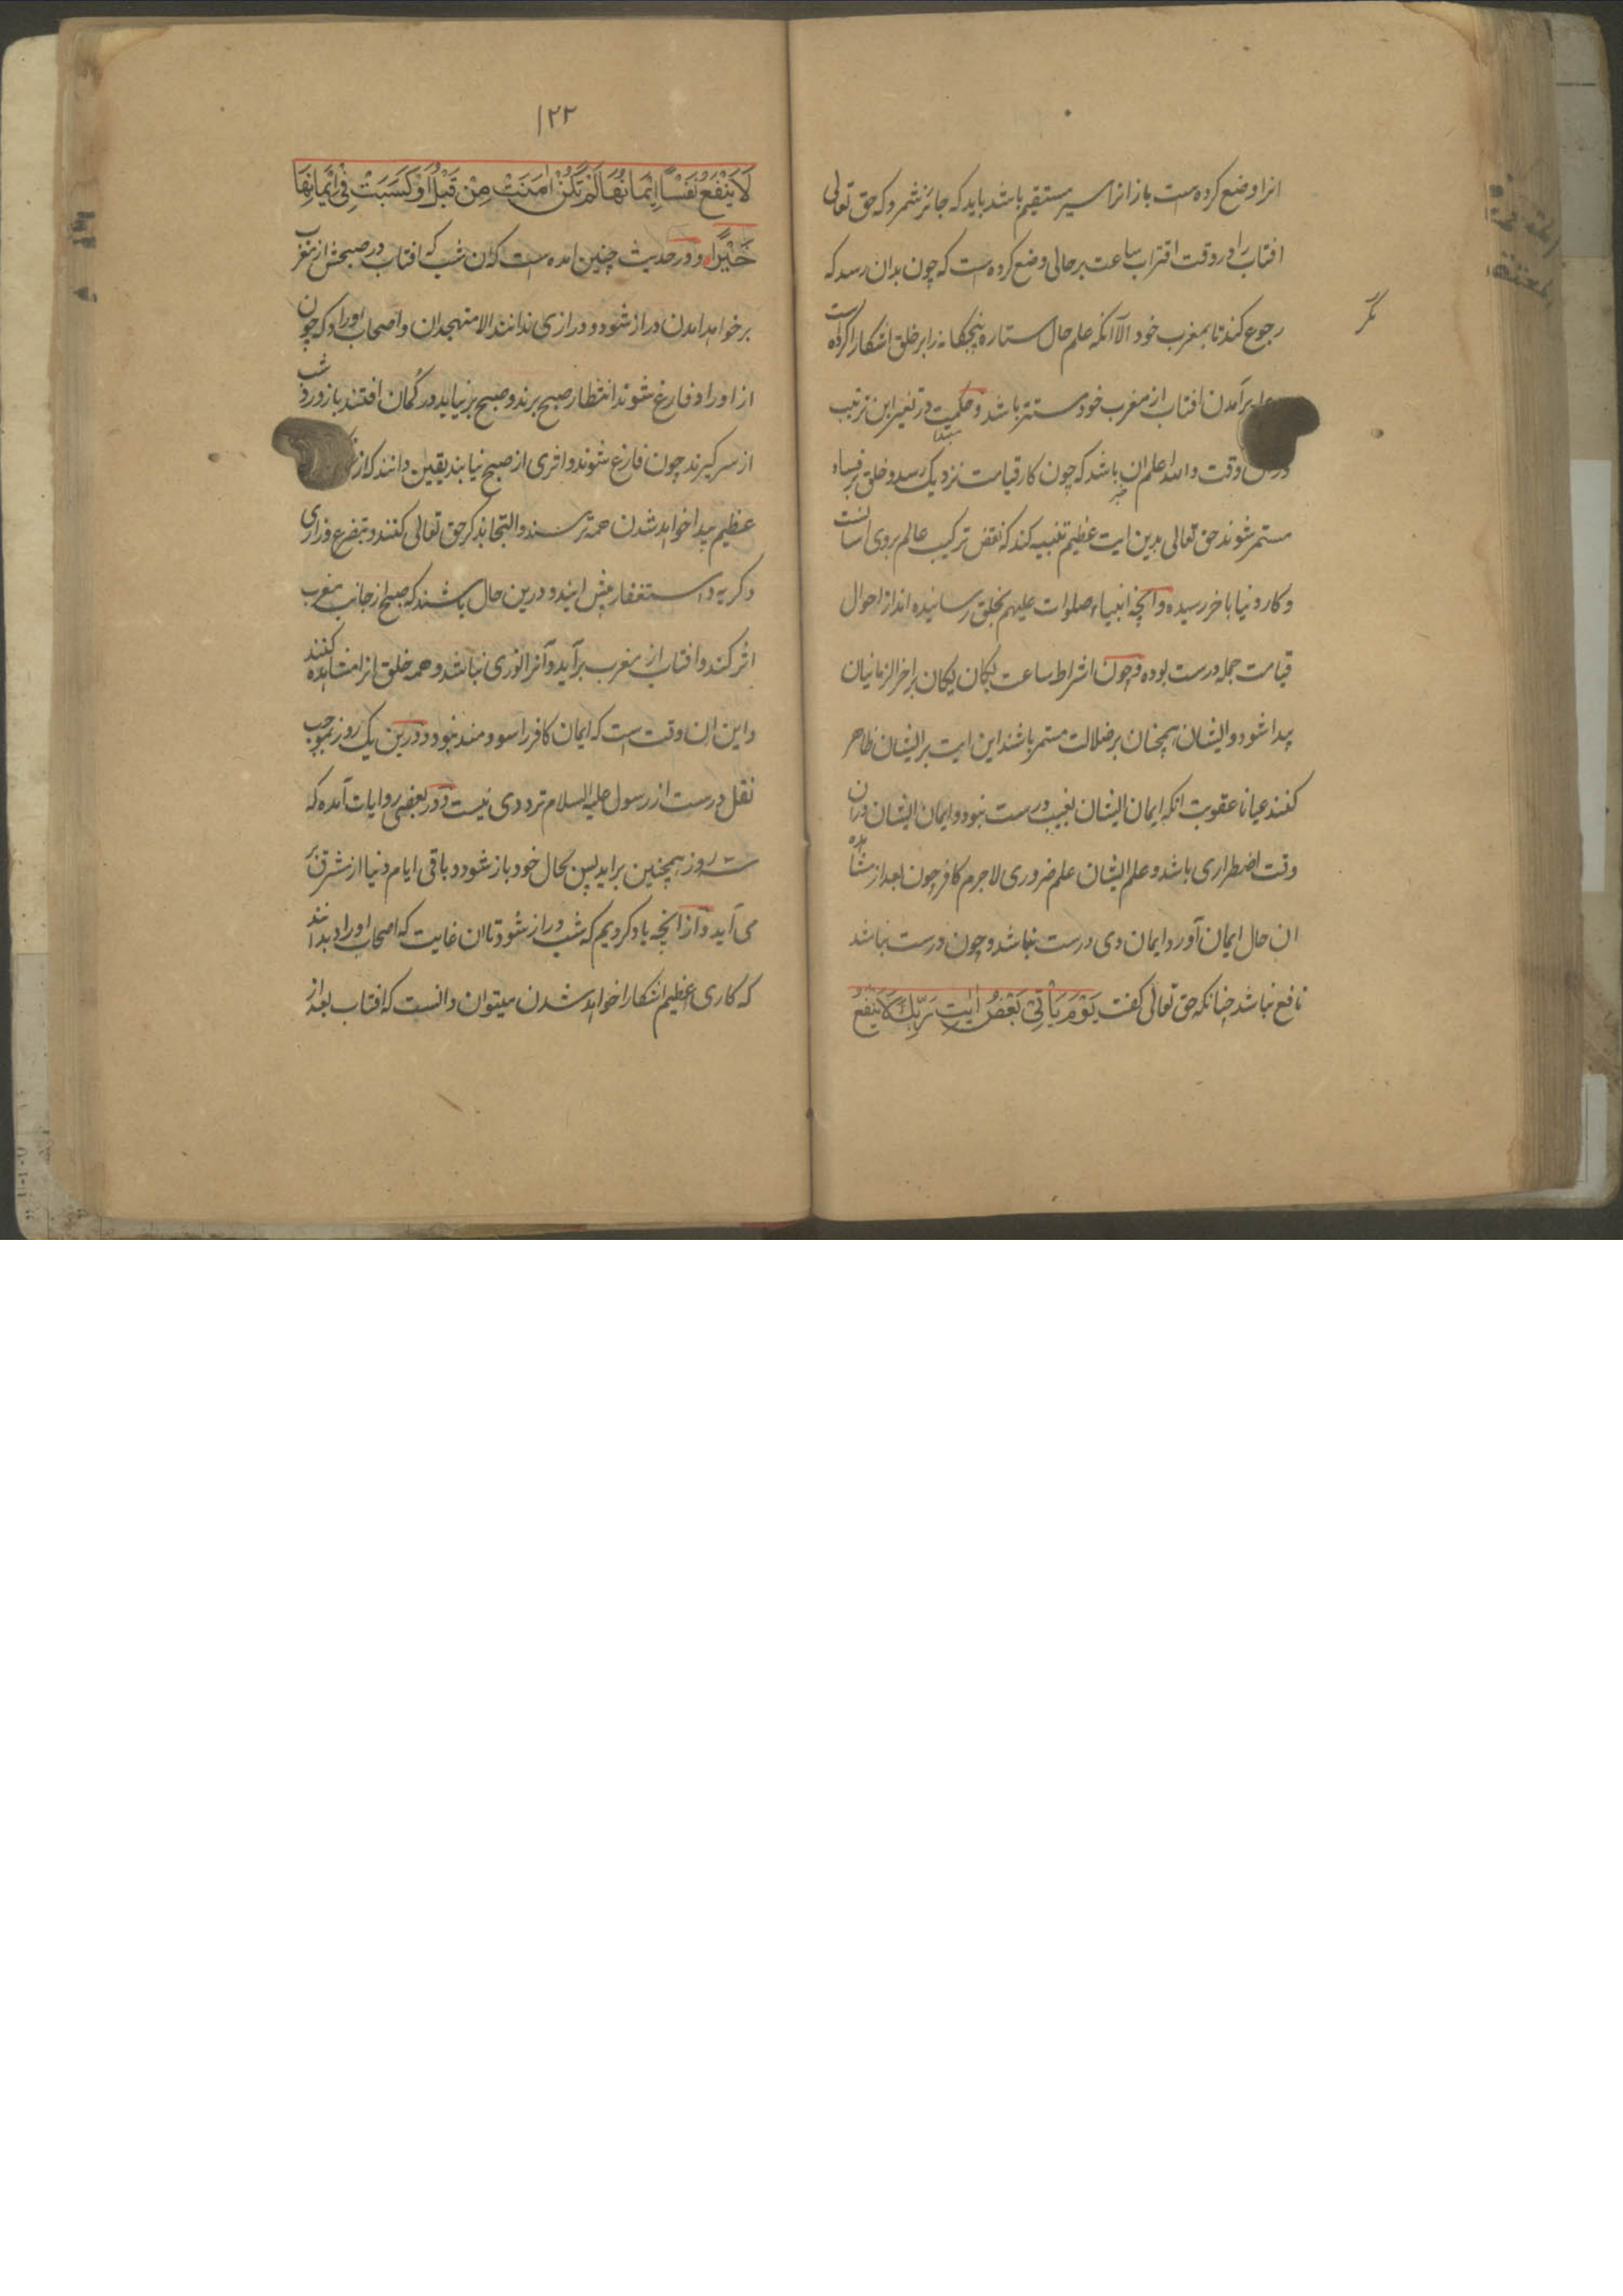 انرا وضع کرده است باز انرا سیر مستقیم باشد باید که جائز شمرد که حق تعالی
افتاب را در وقت اقتراب ساعت بر حالی وضع کرده است که چون بدان رسد که
رجوع کند تا بمغرب خود الا آنکه علم حال ستاره پنجگانه را بر خلق اشکارا کرده است
مگر
برآمدن افتاب از مغرب خود مستتر باشد و حکمت در تغیر این ترتیب
وقت والله اعلم ان باشد که چون کار قیامت نزدیک رسد و خلق بر فساد
مستمر شوند حق تعالی بدین ایت عظیم تنبیه کند که نقض ترکیب عالم بروی اسانست
و کار دنیا باخر رسیده و انچه انبیاء صلوات علیهم بخلق رسانیده اند از احوال
قیامت جمله درست بوده و چون اشراط ساعت یکان یکان بر اخر الزمانیان
پیدا شود و ایشان همچنان بر ضلالت مستمر باشند این ایت بر ایشان ظاهر
کنند عیانا عقوبت انکه ایمان ایشان بغیب درست نبود و ایمان ایشان دران
وقت اضطراری باشد و علم ایشان علم ضروری لاجرم کافر چون بعد از مشاهده
ان حال ایمان آورد ایمان وی درست نباشد و چون درست نباشد
نافع نباشد چنانکه حق تعالی گفت یَوْمَ یَأْتِی بَعْضُ اٰیٰتِ رَبِّكَ لَا یَنْفَعُ
۱۲۲
لَا یَنْفَعُ نَفْسًا اِیْمَانُهَا لَمْ تَكُنْ اٰمَنَتْ مِنْ قَبْلُ اَوْ كَسَبَتْ فِی اِیْمَانِهَا
خَیْرًا و در حدیث چنین امده است که ان شب که افتاب در صبحش از مغرب
بر خواهد امدن دراز شود و درازی ندانند الا متهجدان و اصحاب اوراد که چون
از اوراد فارغ شوند انتظار صبح برند و صبح بر نیاید در گمان افتند باز ورد شب
از سر گیرند چون فارغ شوند و اثری از صبح نیابند یقین دانند که از
عظیم پیدا خواهد شدن همه ترسند و التجا بذکر حق تعالی کنند و بتضرع و زاری
و گریه و استغفار پیش ایند و درین حال باشند که صبح از جانب مغرب
اثر کند و افتاب از مغرب برآید و آنرا نوری نباشد و همه خلق انرا مشاهده کنند
و این ان وقت است که ایمان کافر را سودمند نبود و درین یک روز بموجب
نقل درست از رسول علیه السلام ترددی نیست و در بعضی روایات آمده که
سه روز همچنین براید پس بحال خود باز شود و باقی ایام دنیا از مشرق بر
می آید و از انچه یاد کردیم که شب دراز شود تا ان غایت که اصحاب اوراد بدانند
که کاری عظیم اشکارا خواهد شدن میتوان دانست که افتاب بعد از